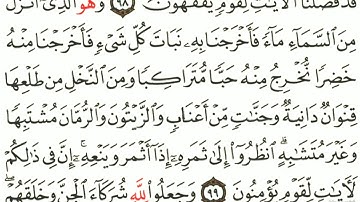 قَدْ فَصَّلْنَا ٱلْأٓيَٰتِ لِقَوْمٍ يَفْقَهُونَ ٩٨ وَهُوَ ٱلَّذِىٓ أَنزَلَ
مِنَ ٱلسَّمَآءِ مَآءً فَأَخْرَجْنَا بِهِۦ نَبَاتَ كُلِّ شَىْءٍ فَأَخْرَجْنَا مِنْهُ
خَضِرًا نُّخْرِجُ مِنْهُ حَبًّا مُّتَرَاكِبًا وَمِنَ ٱلنَّخْلِ مِن طَلْعِهَا
قِنْوَانٌ دَانِيَةٌ وَجَنَّٰتٍ مِّنْ أَعْنَابٍ وَٱلزَّيْتُونَ وَٱلرُّمَّانَ مُشْتَبِهًا
وَغَيْرَ مُتَشَٰبِهٍ ٱنظُرُوٓا۟ إِلَىٰ ثَمَرِهِۦٓ إِذَآ أَثْمَرَ وَيَنْعِهِۦٓ إِنَّ فِى ذَٰلِكُمْ
لَأٓيَٰتٍ لِّقَوْمٍ يُؤْمِنُونَ ٩٩ وَجَعَلُوا۟ لِلَّهِ شُرَكَآءَ ٱلْجِنَّ وَخَلَقَهُمْ